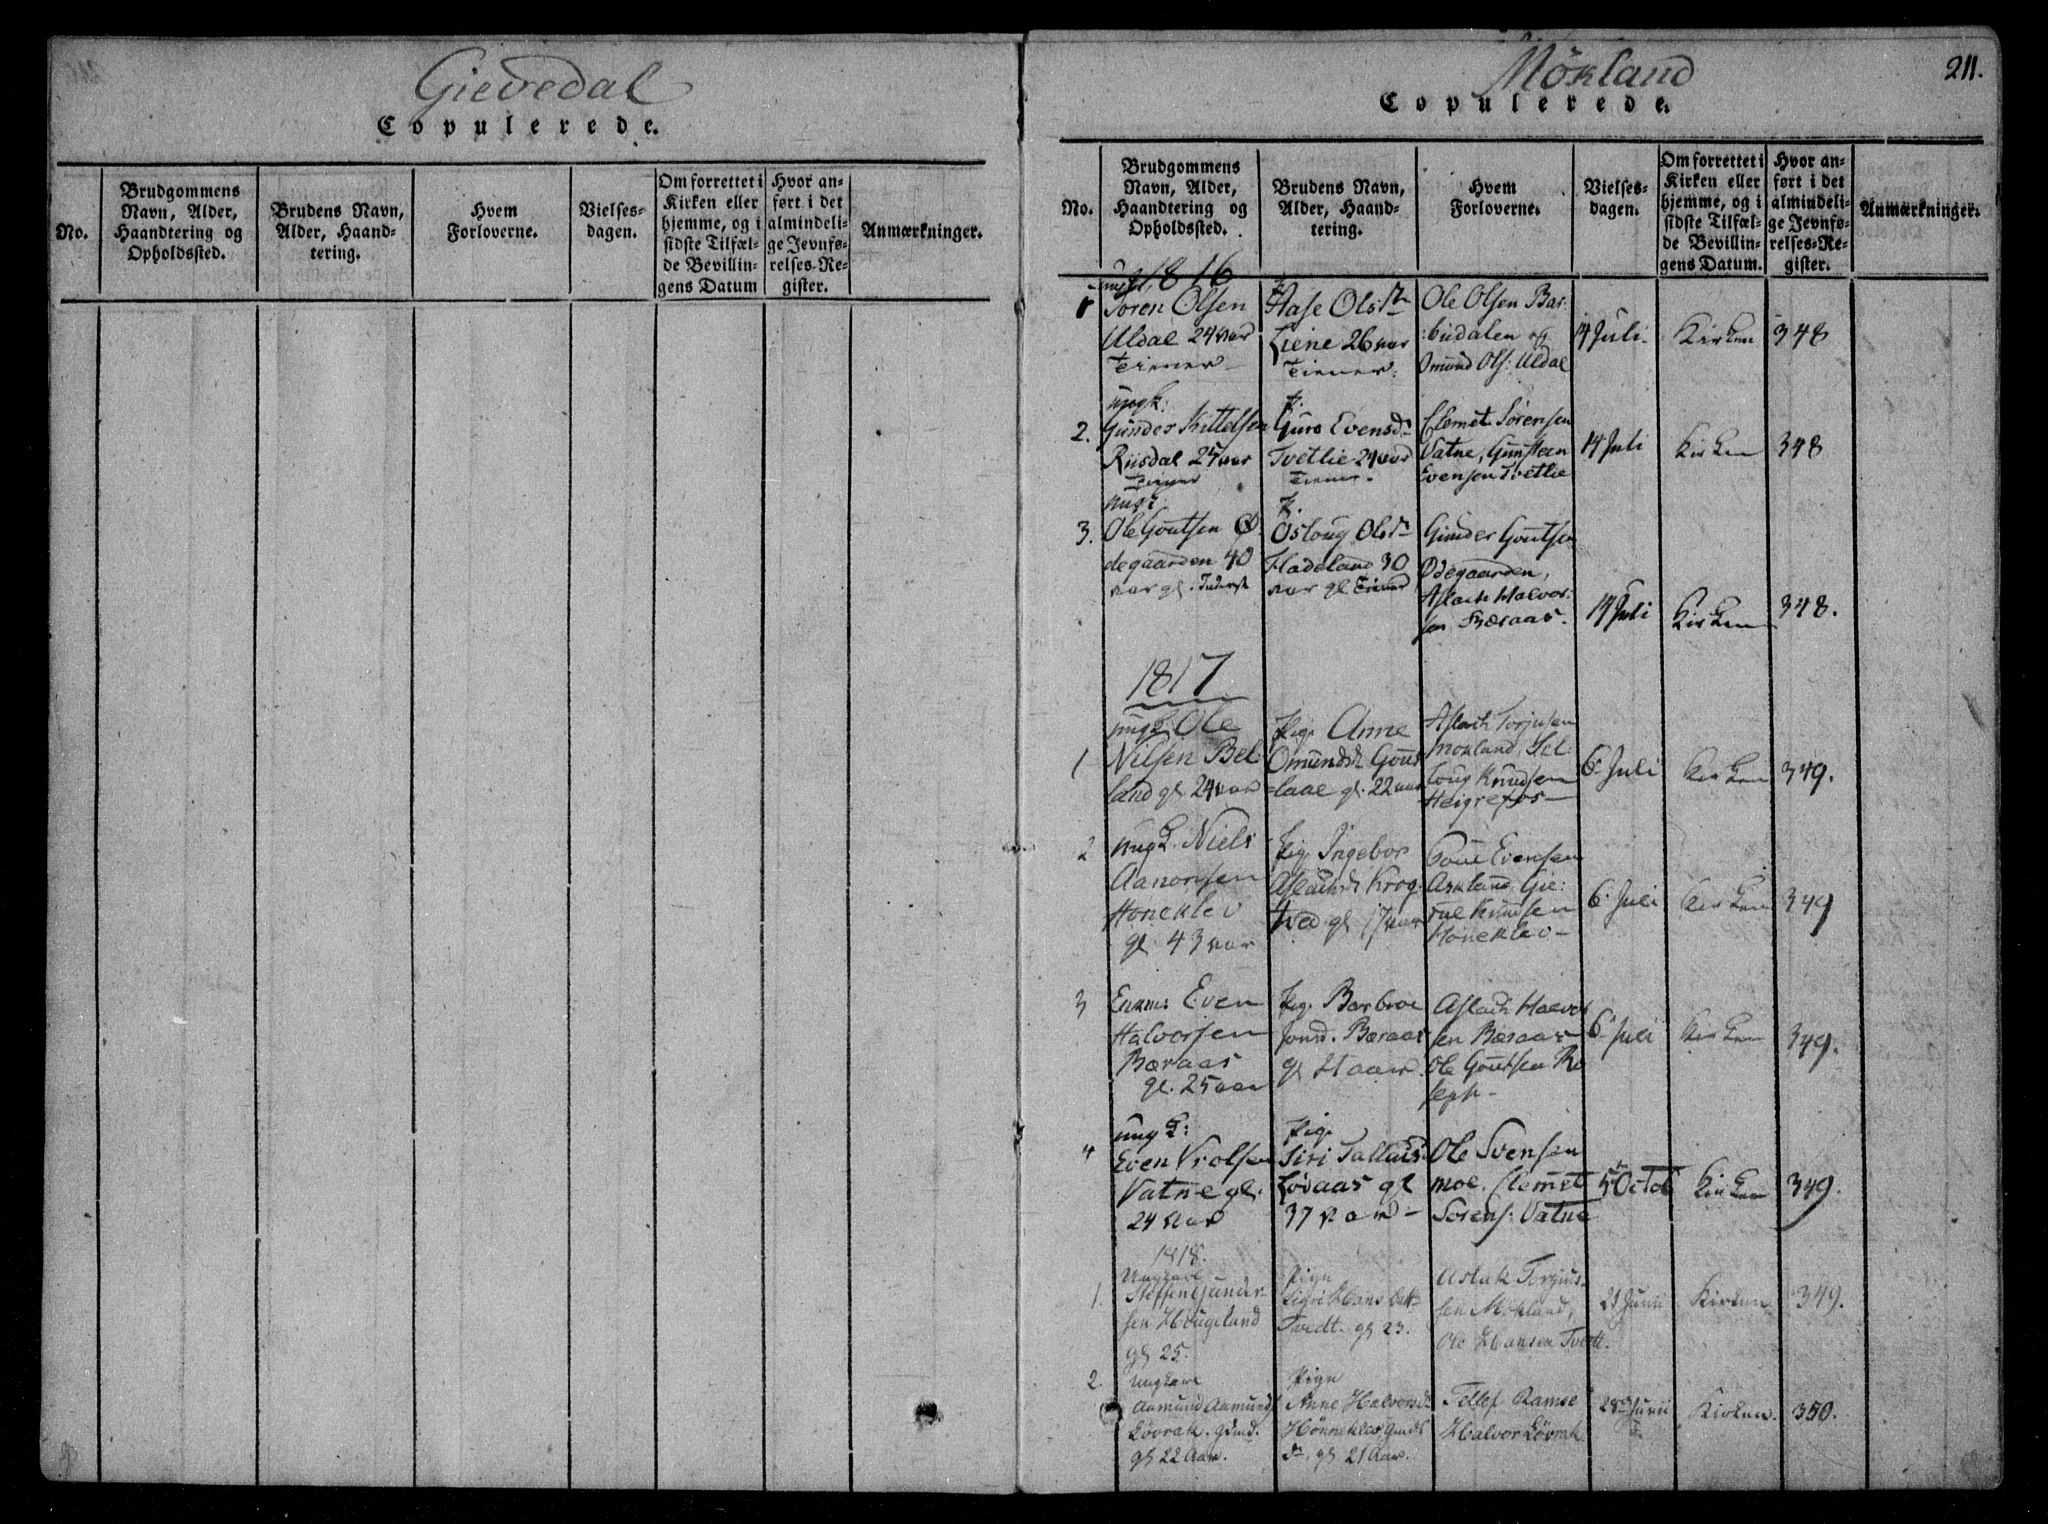 Gievedal
Copulerede.
No.
Brudgommens
Navn, Alder,
Haandtering og
Opholdssted.
Brudens Navn,
Alder, Haand-
tering.
Hvem
Forloverne.
Vielses-
dagen.
Om forrettet i
Kirken eller
hjemme, og i
sidste Tilfæl-
de Bevillin-
gens Datum
Hvor an-
ført i det
almindeli-
ge Jevnfø-
relses-Re-
gister.
Anmærkninger.
Mökland
211.
Copulerede.
No.
Brudgommens
Navn, Alder,
Haandtering og
Opholdssted.
Brudens Navn,
Alder, Haand-
tering.
Hvem
Forloverne.
Vielses-
dagen.
Om forrettet i
Kirken eller
hjemme, og i
sidste Tilfæl-
de Bevillin-
gens Datum.
Hvor an-
ført i det
almindeli-
ge Jevnfø-
relses-Re-
gister.
Anmærkninger.
1816
1
Soren Olsen
Uldal 24 aar
Tiener
Aase Olsdr
Liene 26 aar
Tiener.
Ole Olsen Bas-
budalen og
Omund Ols: Uldal
14 Juli
Kirken
348
2.
ungk:
Gunder Kittelsen
Risdal 25 aar
Tiener
p.
Guro Evensd
Tvetlie 24 aar
Tiener.
Clemet Sörensen
Vatne, Gunsteen
Evensen Tvetlie
14 Juli
Kirken
348
3.
ungk
Ole Goutsen Ø
degaarden 40
aar gl. Inderst
p.
Oslaug Olsdr
Fladeland 30
aar gl Tiener
Gunder Goutsen
Ødegaarden,
Aslach Halvor-
sen Bæraas.
14 Juli
Kirken
348.
1817
1
ungk Ole
Nilsen Bel-
land gl 24 aar
Pig. Anne
Omundsd Gous
laae gl. 22 aar
Aslach Torjusen
Mokland, Sel-
loug Knudsen
Heigrefos
6 Juli
Kirken
349.
2
ungk. Niels
Aanonsen
Honeklev
gl 43 aar
Pig. Ingebor
Aslachsd Krog-
tved gl 17 aar
Evensen
Askland, Gie-
Knudsen
Honeklev
6 Juli
Kirken
349
3
Enkem: Even
Halvorsen
Bæraas
gl. 25 aar
Pig. Barbroe
Jonsd. Bæraas
gl
Aslach Halvor
sen Bæraas
Ole Goutsen Ro
seph
6 Juli
Kirken
349.
4
ungk:
Even Vrolsen
Vatne gl.
24 aar
Pig.
Siri Tallaksd
Lövaas gl
37 aar
Ole Svensen
Moe. Clemet
Sörens: Vatne
5 Octob
Kirken
349.
1818.
1.
Ungkarl
Steffen Gunder-
sen Haugeland
gl 25.
Pigen
Sigri Hans Datt-
Tvedt. gl 23.
Aslak Torgius-
sen Mökland,
Ole Hansen Tvedt.
21 Junii
Kirken
349.
2.
Ungkarl
Aamund Aamunds
Lövrak. Gdmd.
gl 22 Aar.
Pigen
Anne Halvorsd
Hönneklev, Gmds
Dr. gl 21 Aar.
Tellef Ramse
Halvor Lövrak
28de Junii
Kirken.
350.